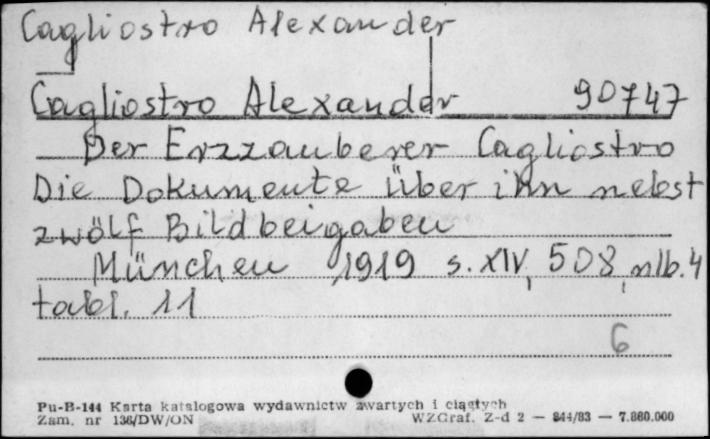 Cagliostro Alexander
Cagliostro Alexander 90747
Der Erzzauberer Cagliostro
Die Dokumente über ihn nebst
zwölf Bildbeigaben
München 1919 s. XIV, 508, nlb. 4
tabl. 11
6
Pu-B-144 Karta katalogowa wydawnictw zwartych i ciągłych
Zam. nr 136/DW/ON WZGraf. Z-d 2 — 844/83 — 7.860.000